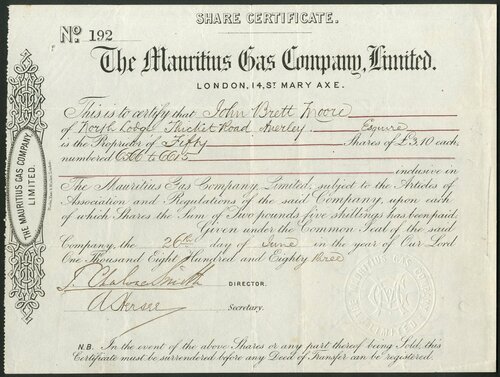 SHARE CERTIFICATE.
No. 192
The Mauritius Gas Company, Limited.
LONDON, 14, ST MARY AXE.
This is to certify that John Brett Moore
of North Lodge Thicket Road Anerley Esquire
is the Proprietor of Fifty Shares of £3,10 each,
numbered to 6615
inclusive in
The Mauritius Gas Company, Limited, subject to the Articles of
Association and Regulations of the said Company, upon each
of which Shares the Sum of Two pounds five shillings has been paid.
Given under the Common Seal of the said
Company, the 26th day of June in the year of Our Lord
One Thousand Eight Hundred and Eighty three
Smith DIRECTOR.
Secretary.
N.B. In the event of the above Shares or any part thereof being Sold, this
Certificate must be surrendered before any Deed of Transfer can be registered.
THE MAURITIUS GAS COMPANY
LIMITED.
THE MAURITIUS GAS COMPANY
LIMITED